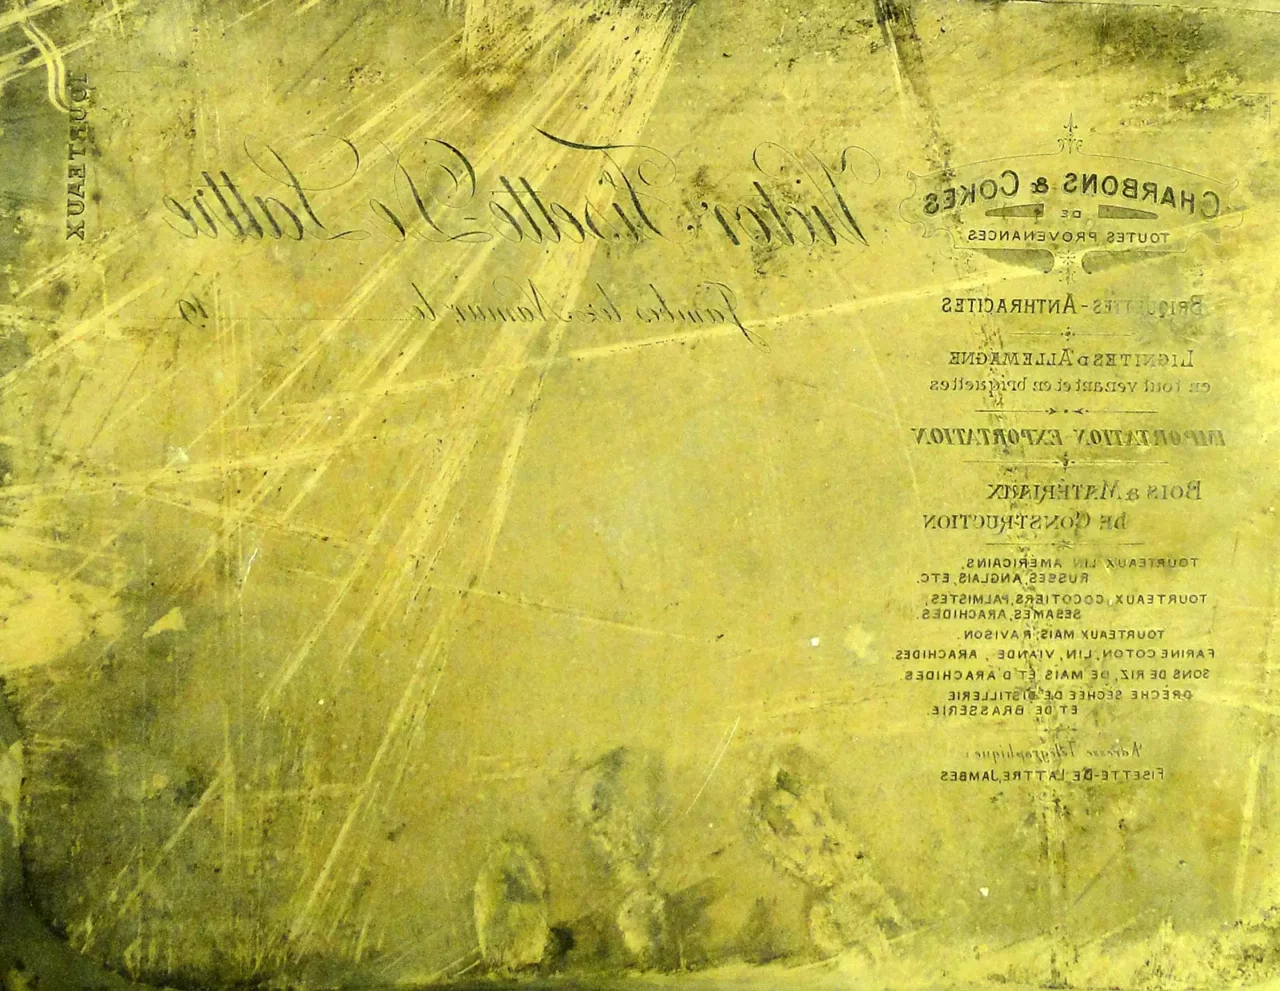 CHARBONS & COKES
DE
TOUTES PROVENANCES
BRIQUETTES - ANTHRACITES
LIGNITES D'ALLEMAGNE
en tout venant et en briquettes
IMPORTATION-EXPORTATION
BOIS & MATÉRIAUX
DE CONSTRUCTION
TOURTEAUX LIN AMÉRICAINS,
RUSSES, ANGLAIS, ETC.
TOURTEAUX, COCOTIERS, PALMISTES,
SÉSAMES, ARACHIDES.
TOURTEAUX MAIS, RAVISON.
FARINE COTON, LIN, VIANDE, ARACHIDES.
SONS DE RIZ, DE MAIS ET D'ARACHIDES.
DRÈCHE SÉCHÉE DE DISTILLERIE
ET DE BRASSERIE.
Adresse Télégraphique:
FISETTE-DE LATTRE, JAMBES
Victor Fisette-De Lattre
Jambes lez Namur, le 19
TOURTEAUX